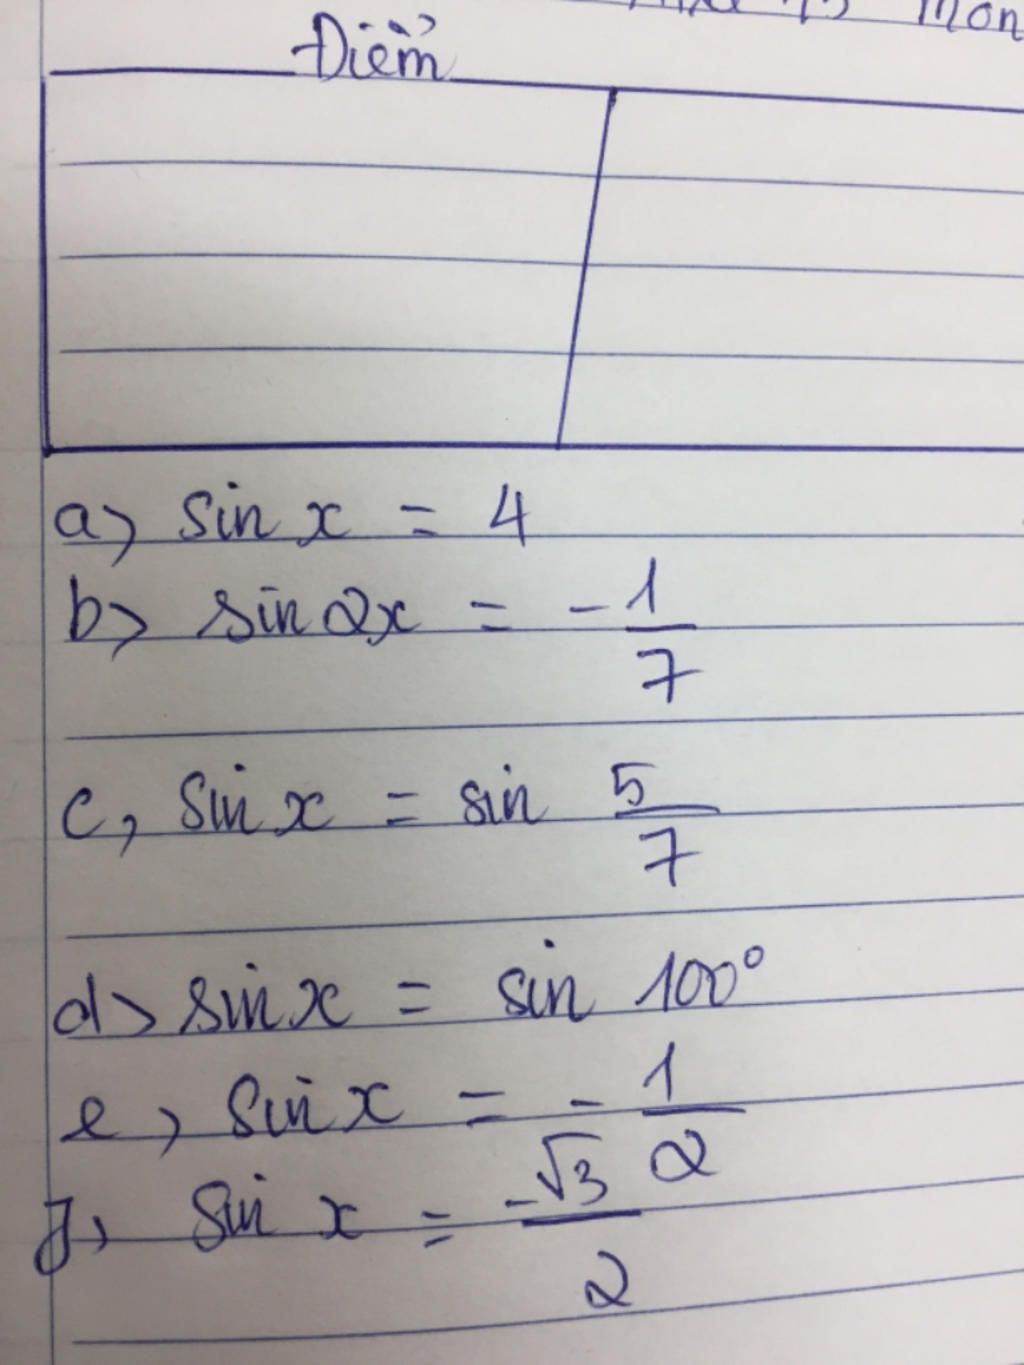 Môn
Điểm
a) sin x = 4
b) sin 2x = - 1/7
c, sin x = sin 5/7
d) sin x = sin 100°
e, sin x = - 1/2
f, sin x = -√3/2